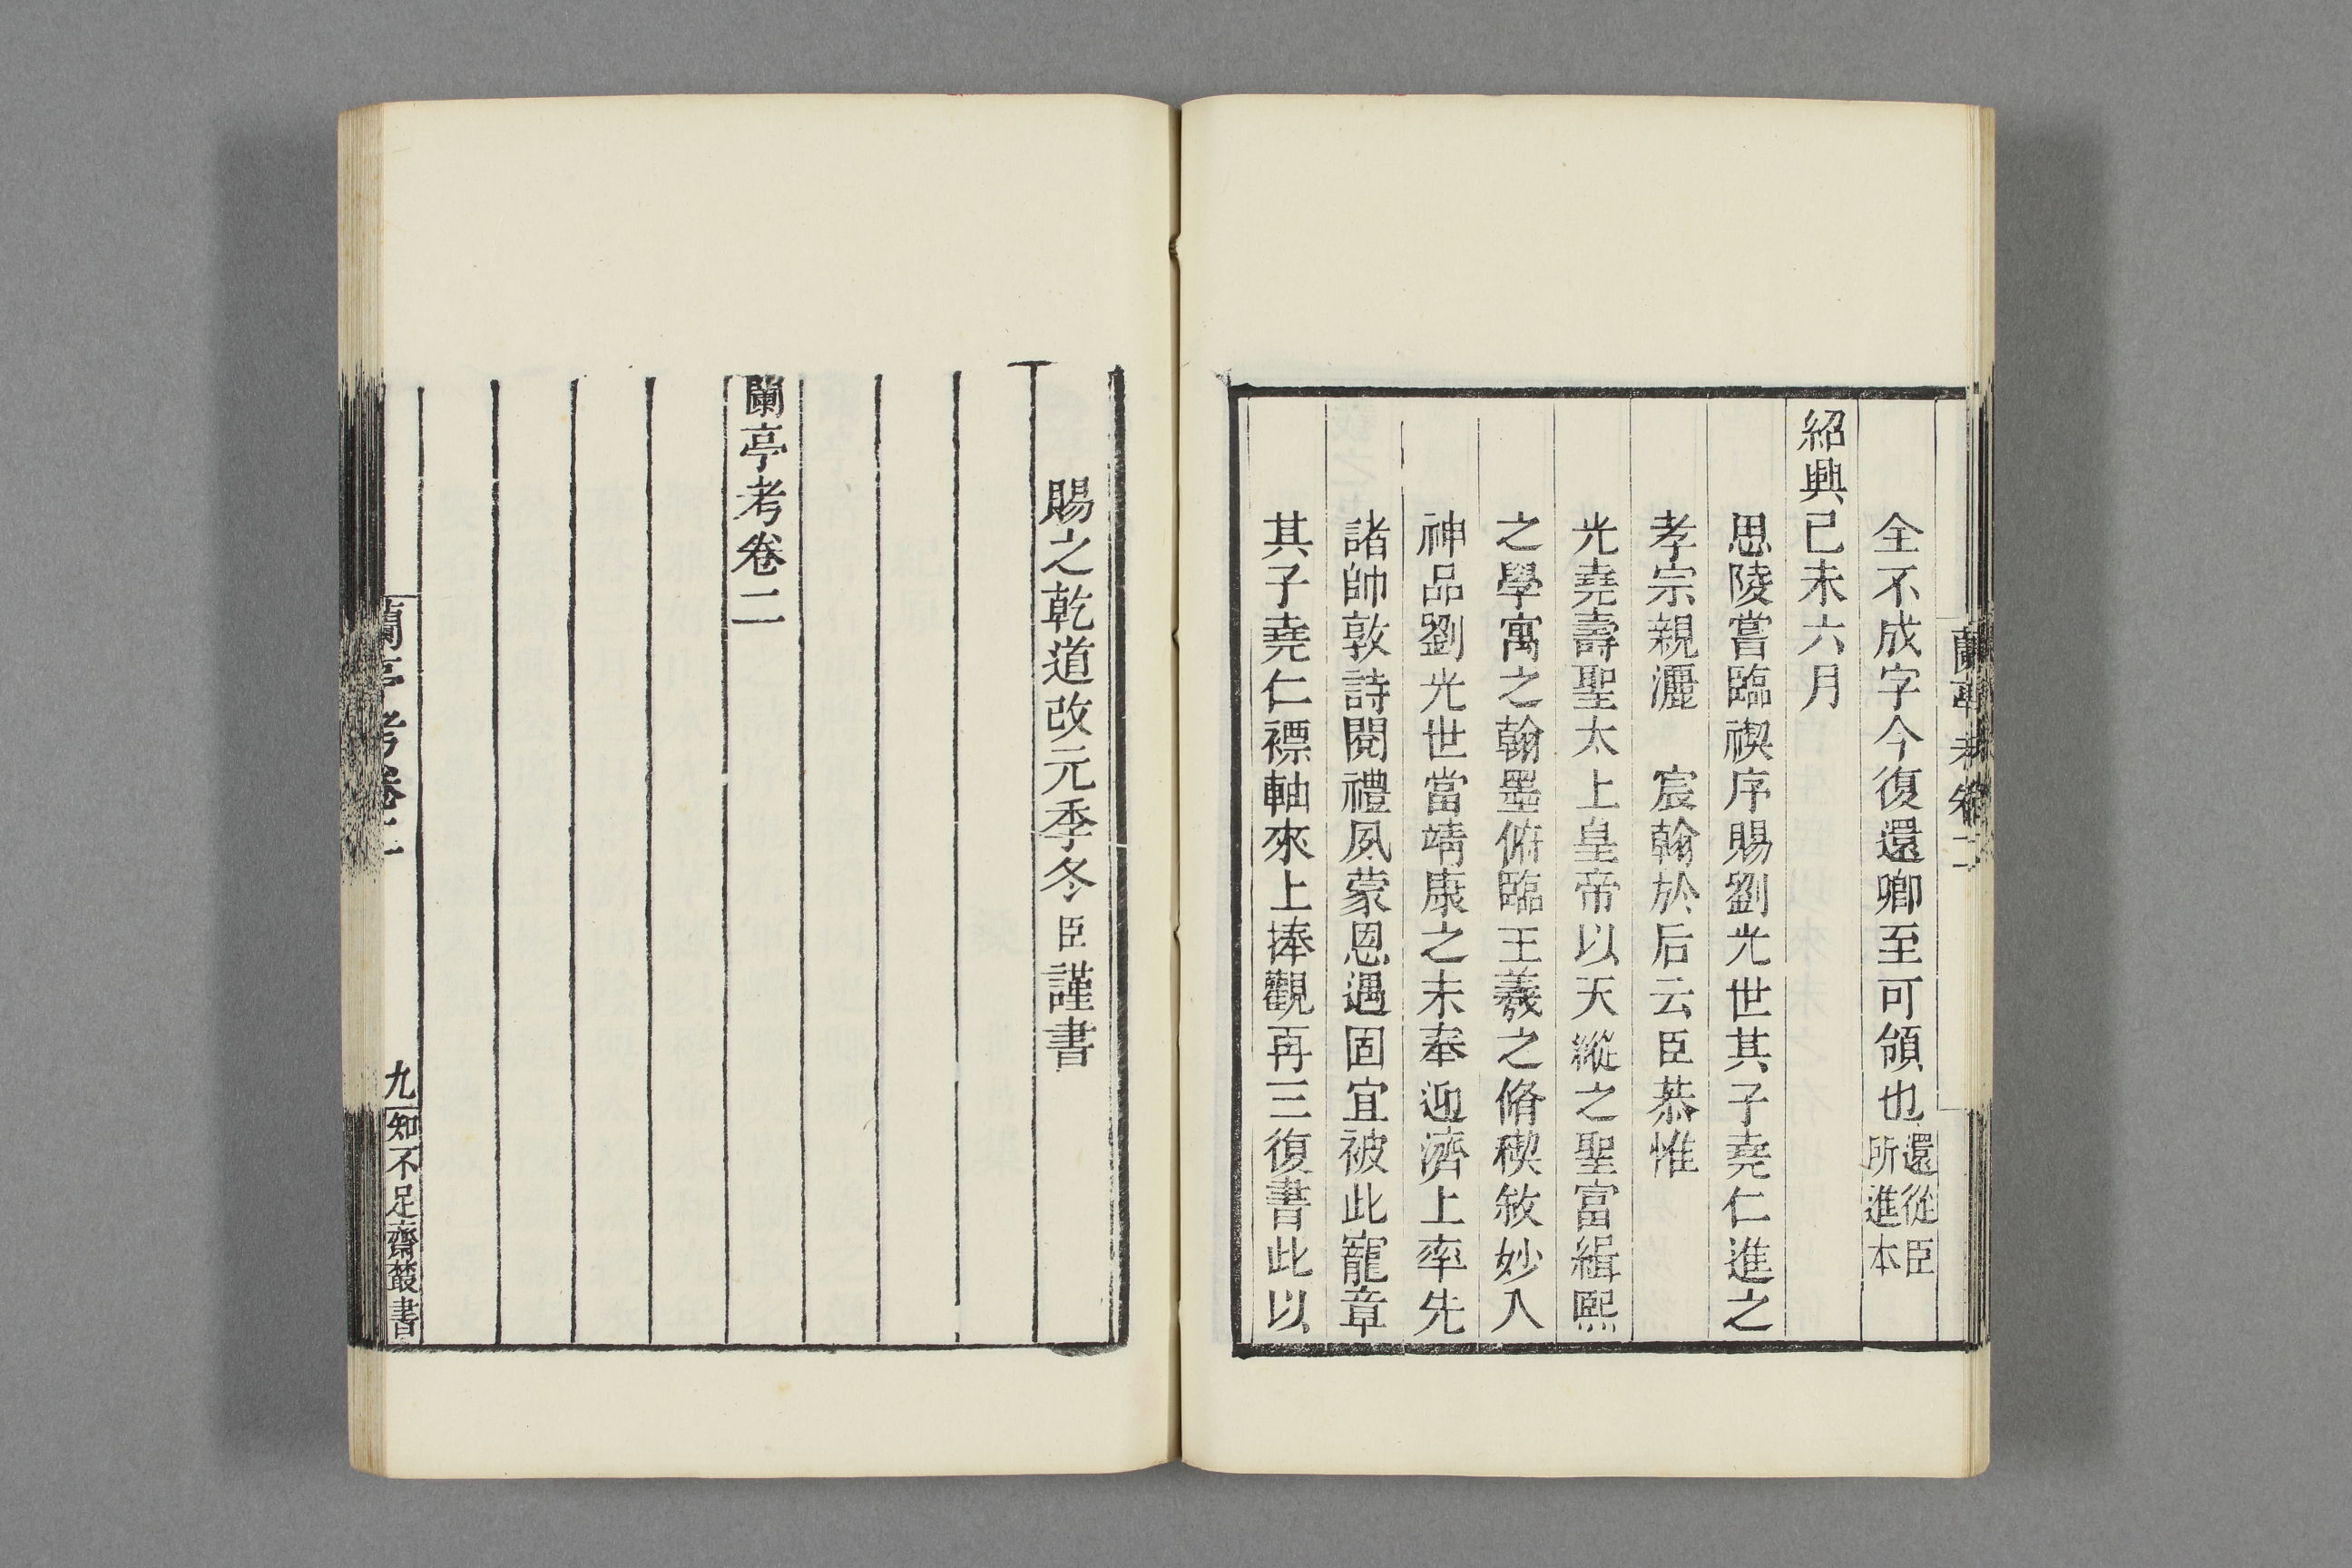 蘭亭考卷二
全不成字今復還卿至可領也還從臣所進本
紹興己未六月
思陵嘗臨禊序賜劉光世其子堯仁進之
孝宗親灑　宸翰於后云臣恭惟
光堯壽聖太上皇帝以天縱之聖富緝熙
之學寓之翰墨俯臨王羲之脩稧敘妙入
神品劉光世當靖康之末奉迎濟上率先
諸帥敦詩閱禮夙蒙恩遇固宜被此寵章
其子堯仁褾軸來上捧觀再三復書此以
賜之乾道改元季冬臣謹書
蘭亭考卷二
蘭亭考卷二
九
知不足齋叢書